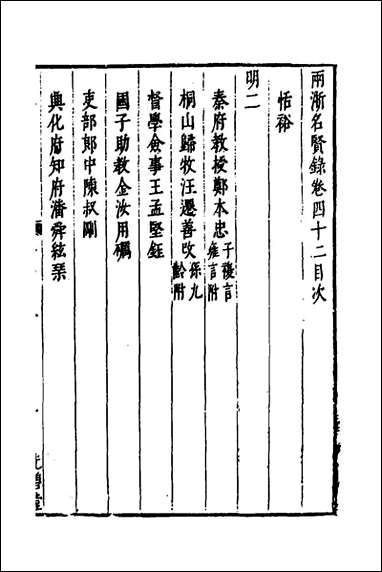 兩浙名賢錄卷四十二目次
恬裕
明二
秦府教授鄭本忠 子復言 雍言附
桐山歸牧汪遷善改 孫九齡附
督學僉事王孟堅鈺
國子助教金汝用礪
吏部郎中陳叔剛
興化府知府潘舜絃琴
光碧堂